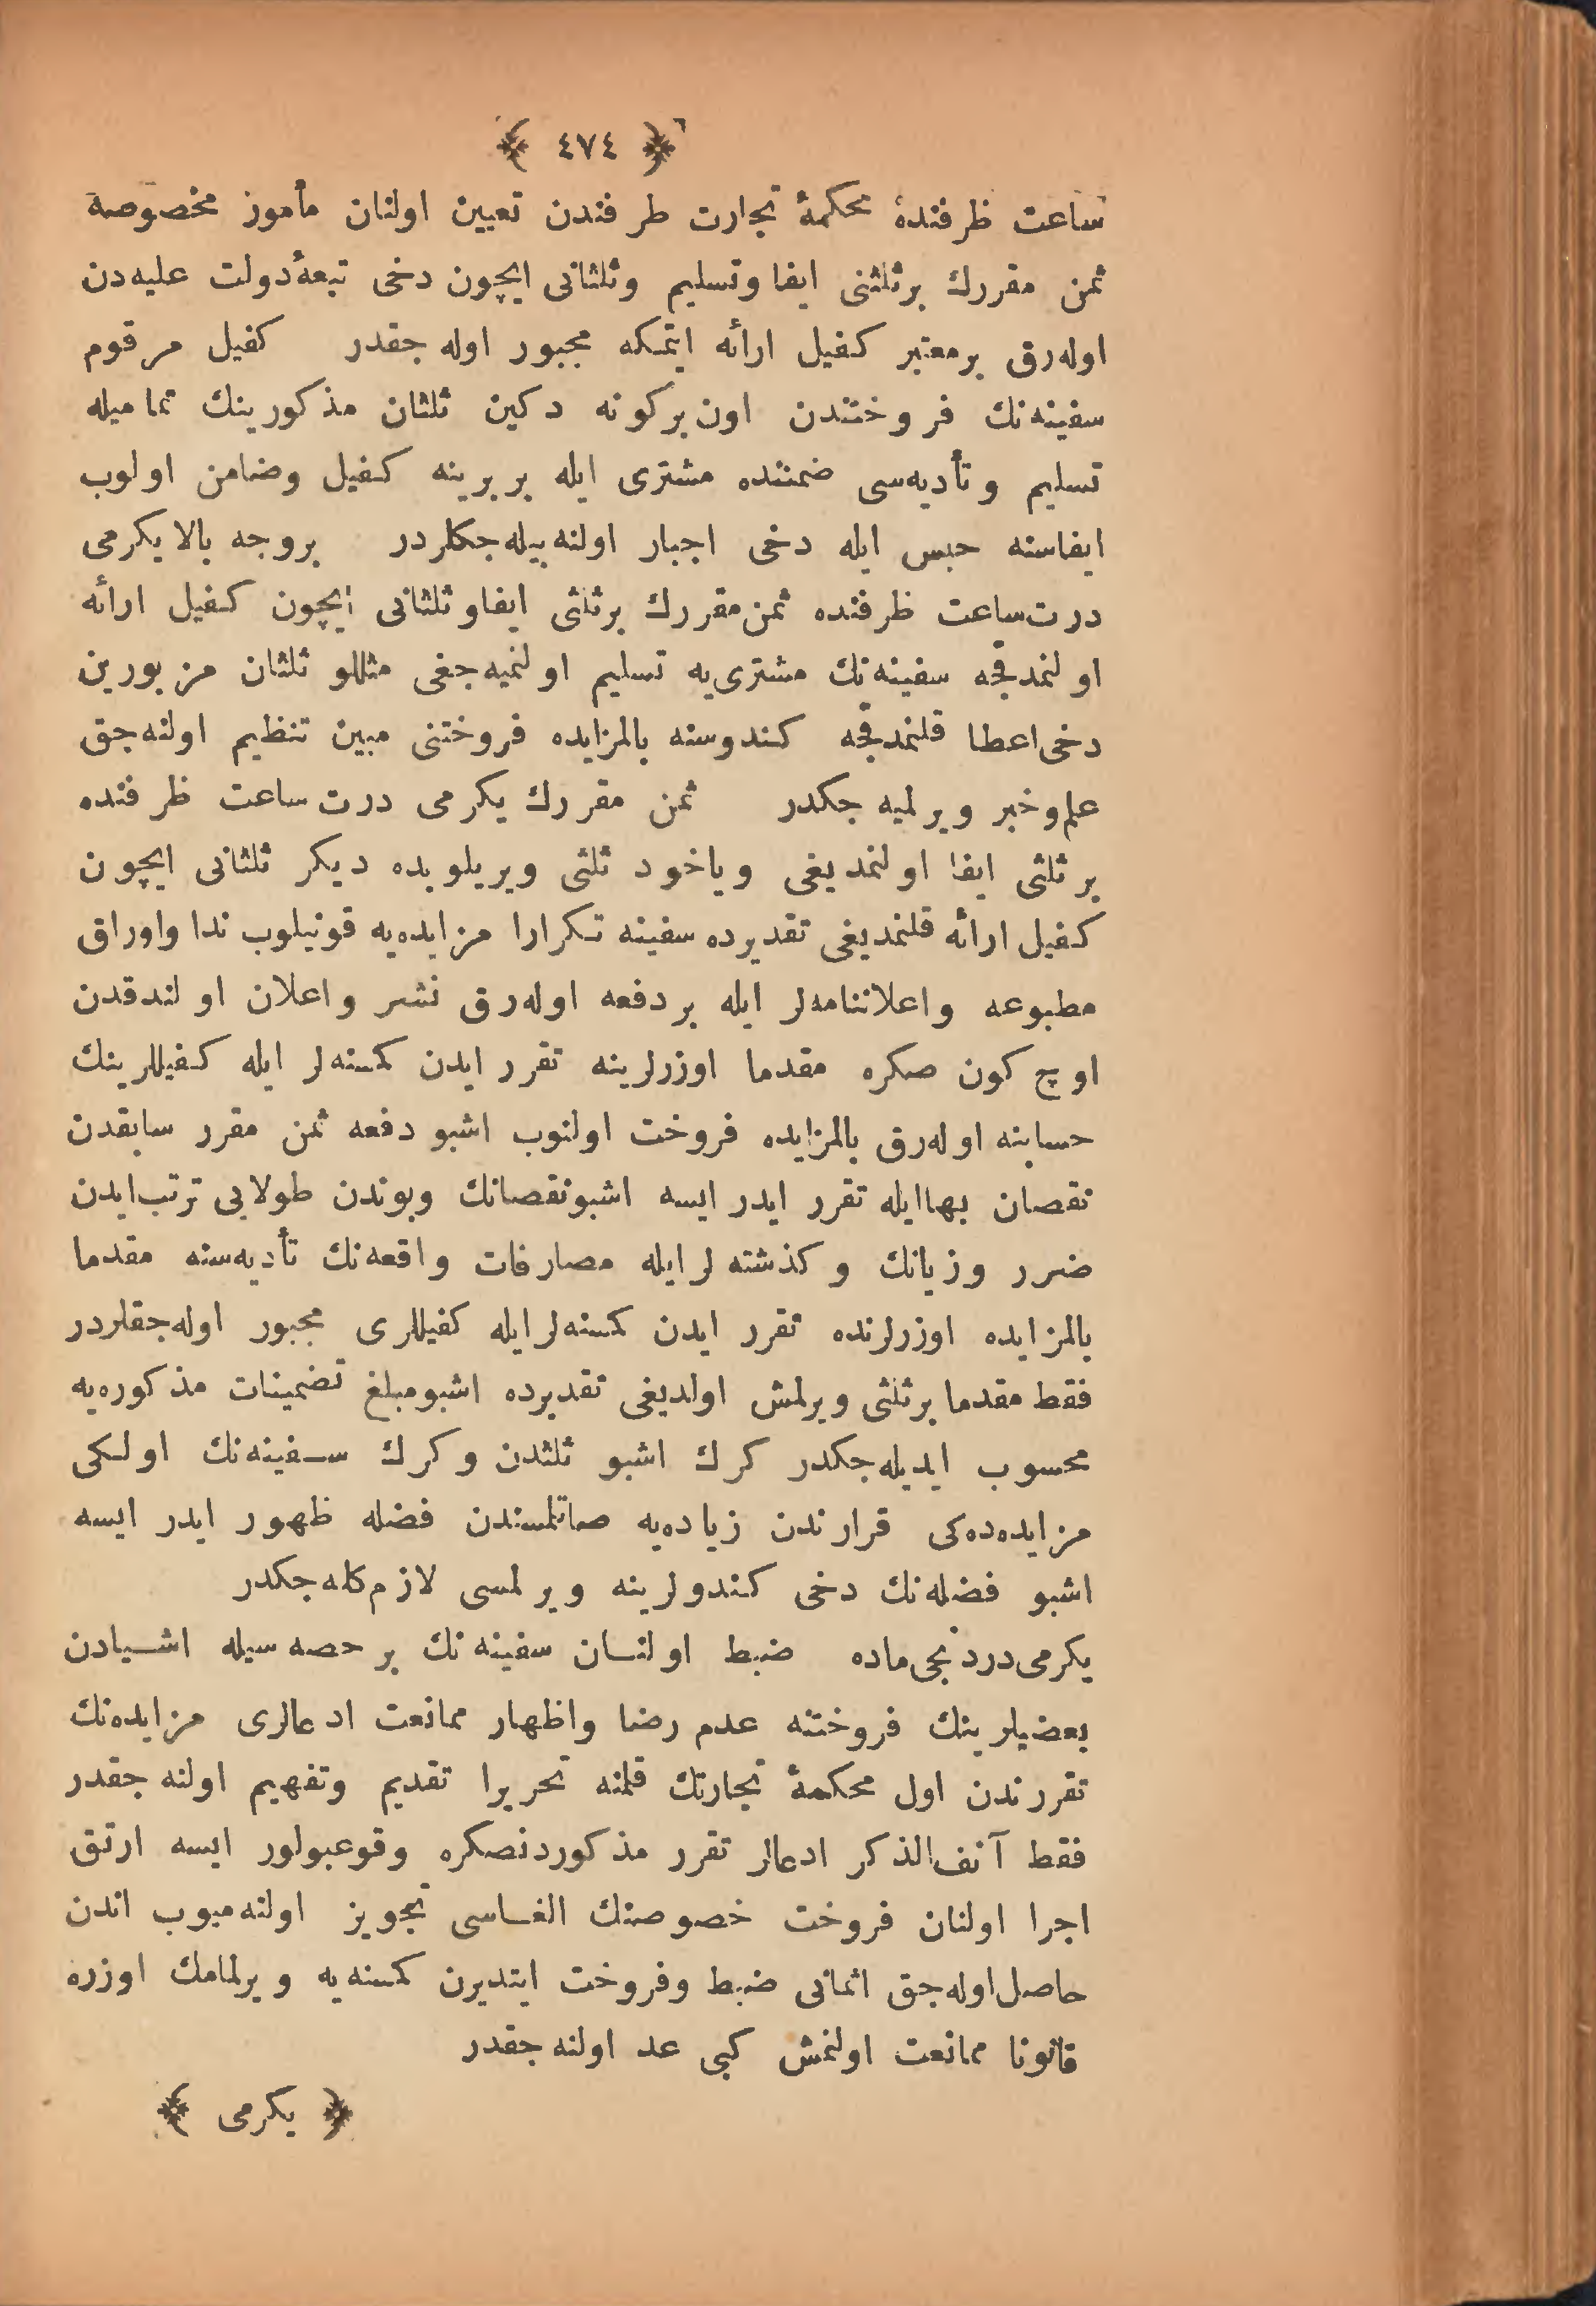 ﴿ ٤٧٤ ﴾
ساعت ظرفنده محكمهٔ تجارت طرفندن تعیین اولنان مأمور مخصوصه
ثمن مقررك برثلثنی ایفا وتسلیم وثلثانی ایچون دخی تبعهٔ دولت علیه‌دن
اوله‌رق برمعتبر كفیل ارائه ایتمكه مجبور اوله جقدر كفیل مرقوم
سفینه‌نك فروختندن اون بر كونه دكین ثلثان مذكورینك تمامیله
تسلیم وتأدیه‌سی ضمننده مشتری ایله بربرینه كفیل وضامن اولوب
ایفاسنه حبس ایله دخی اجبار اولنه بیله‌جكلردر بروجه بالا یكرمی
درت ساعت ظرفنده ثمن مقررك برثلثی ایفاوثلثانی ایچون كفیل ارائه
اولنمدقجه سفینه‌نك مشتری‌یه تسلیم اولنمیه‌جغی مثللو ثلثان مزبورین
دخی اعطا قلنمدقجه كندوسنه بالمزایده فروختنی مبین تنظیم اولنه‌جق
علم‌وخبر ویرلمیه جكدر ثمن مقررك یكرمی درت ساعت ظرفنده
برثلثی ایفا اولنمدیغی ویاخود ثلثی ویریلوبده دیكر ثلثانی ایچون
كفیل ارائه قلنمدیغی تقدیرده سفینه تكرارا مزایده‌یه قونیلوب ندا واوراق
مطبوعه واعلاننامه‌لر ایله بردفعه اوله‌رق نشر واعلان اولندقدن
اوچ كون صكره مقدما اوزرلرینه تقرر ایدن كمسنه‌لر ایله كفیللرینك
حسابنه اوله‌رق بالمزایده فروخت اولنوب اشبو دفعه ثمن مقرر سابقدن
نقصان بهاایله تقرر ایدر ایسه اشبونقصانك وبوندن طولایی ترتب‌ایدن
ضرر وزیانك وكذشته لرایله مصارفات واقعه‌نك تأدیه‌سنه مقدما
بالمزایده اوزرلرنده تقرر ایدن كمسنه‌لرایله كفیللری مجبور اوله‌جقلردر
فقط مقدما برثلثی ویرلمش اولدیغی تقدیرده اشبومبلغ تضمینات مذكوره‌یه
محسوب ایدیله‌جكدر كرك اشبو ثلثدن وكرك سفینه‌نك اولكی
مزایده‌ده‌كی قرارندن زیاده‌یه صاتلمسندن فضله ظهور ایدر ایسه
اشبو فضله‌نك دخی كندولرینه ویرلمسی لازم‌كله‌جكدر
یكرمی‌دردنجی‌ماده ضبط اولنان سفینه‌نك بر حصه سیله اشیادن
بعضیلرینك فروختنه عدم رضا واظهار ممانعت ادعالری مزایده‌نك
تقررندن اول محكمهٔ تجارتك قلمنه تحریرا تقدیم وتفهیم اولنه جقدر
فقط آنف‌الذكر ادعالر تقرر مذكوردنصكره وقوعبولور ایسه ارتق
اجرا اولنان فروخت خصوصنك الغاسی تجویز اولنه میوب اندن
حاصل‌اوله‌جق اثمانی ضبط وفروخت ایتدیرن كمسنه‌یه ویرلمامك اوزره
قانونا ممانعت اولنمش كبی عد اولنه جقدر
﴿ یكرمی ﴾